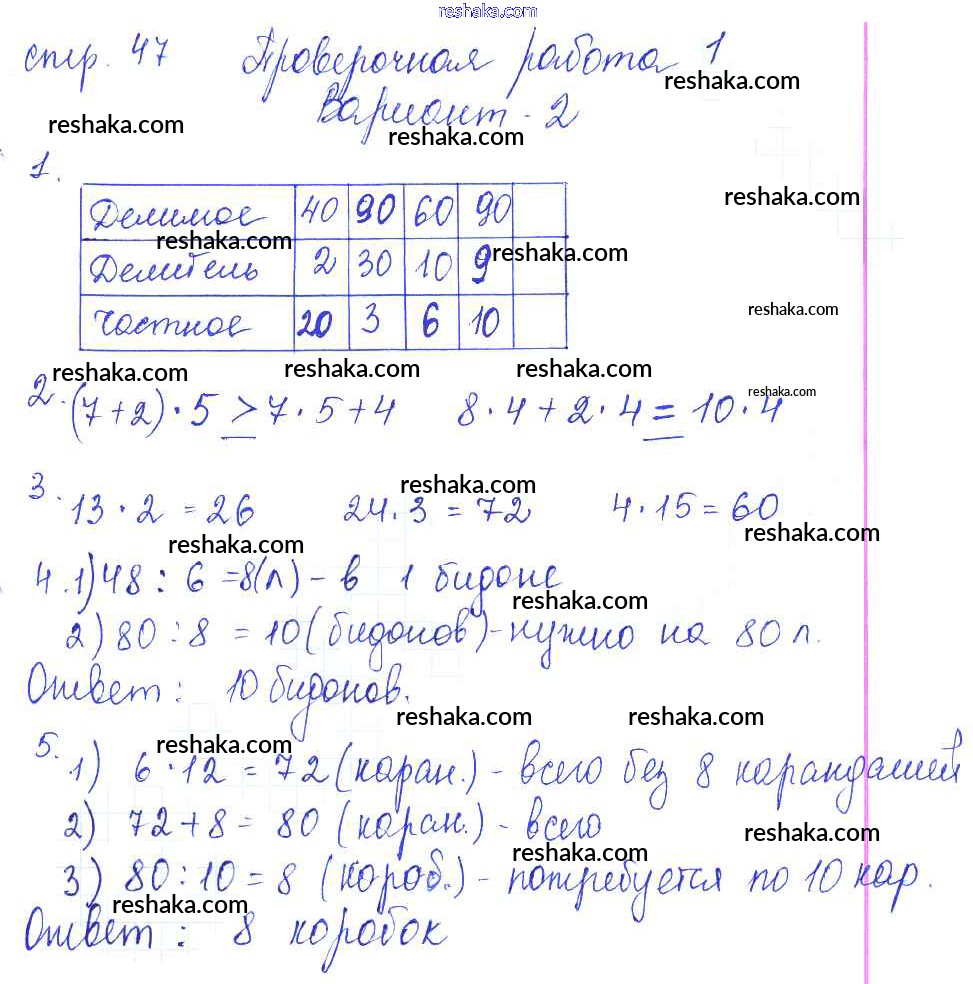 reshaka.com
стр. 47 Проверочная работа 1
reshaka.com
Вариант - 2
reshaka.com
reshaka.com
1.
reshaka.com
Делимое 40 90 60 90
reshaka.com
reshaka.com
Делитель 2 30 10 9
Частное 20 3 6 10
reshaka.com
reshaka.com reshaka.com reshaka.com
reshaka.com
2. (7+2)·5 > 7·5+4 8·4+2·4 = 10·4
reshaka.com
3. 13·2 = 26 24·3 = 72 4·15 = 60
reshaka.com
reshaka.com
4. 1) 48 : 6 = 8(л) - в 1 бидоне
reshaka.com
2) 80 : 8 = 10 (бидонов) - нужно на 80 л.
Ответ: 10 бидонов.
reshaka.com reshaka.com
reshaka.com
5. 1) 6·12 = 72 (каран.) - всего без 8 карандашей
2) 72+8 = 80 (каран.) - всего
reshaka.com
reshaka.com
3) 80:10 = 8 (короб.) - потребуется по 10 кар.
reshaka.com
Ответ: 8 коробок